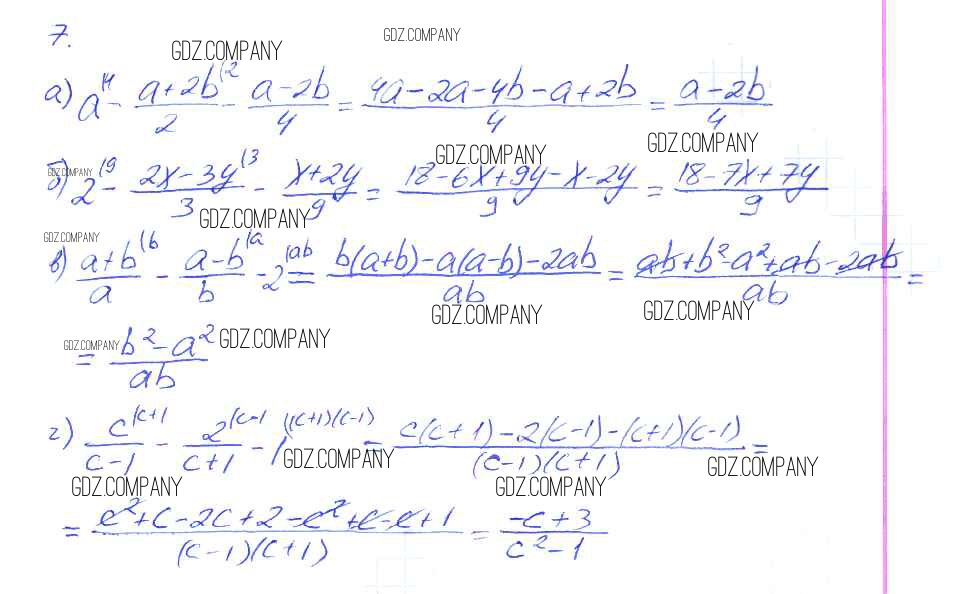 7.
GDZ.COMPANY GDZ.COMPANY
а) a^{(4} - \frac{a+2b^{(2}}{2} - \frac{a-2b}{4} = \frac{4a-2a-4b-a+2b}{4} = \frac{a-2b}{4}
GDZ.COMPANY GDZ.COMPANY GDZ.COMPANY
б) 2^{(9} - \frac{2x-3y^{(3}}{3} - \frac{x+2y}{9} = \frac{18-6x+9y-x-2y}{9} = \frac{18-7x+7y}{9}
GDZ.COMPANY
GDZ.COMPANY
в) \frac{a+b^{(b}}{a} - \frac{a-b^{(a}}{b} - 2^{(ab} = \frac{b(a+b)-a(a-b)-2ab}{ab} = \frac{ab+b^2-a^2+ab-2ab}{ab} =
GDZ.COMPANY GDZ.COMPANY
GDZ.COMPANY = \frac{b^2-a^2}{ab} GDZ.COMPANY
г) \frac{c^{(c+1}}{c-1} - \frac{2^{(c-1}}{c+1} - 1^{((c+1)(c-1)} = \frac{c(c+1)-2(c-1)-(c+1)(c-1)}{(c-1)(c+1)} =
GDZ.COMPANY GDZ.COMPANY
GDZ.COMPANY GDZ.COMPANY
= \frac{c^2+c-2c+2-c^2+c-c+1}{(c-1)(c+1)} = \frac{-c+3}{c^2-1}